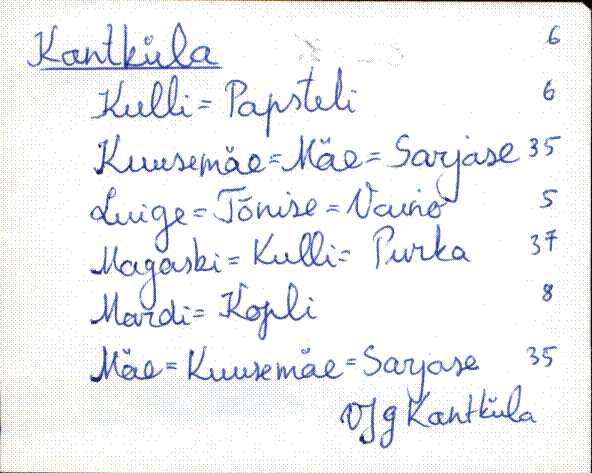 Kantküla 6
Kulli = Papsteli 6
Kuusemäe = Mäe = Sarjase 35
Luige = Tõnise = Vaino 5
Magaski = Kulli = Purka 37
Mardi = Kopli 8
Mäe = Kuusemäe = Sarjase 35
Kantküla